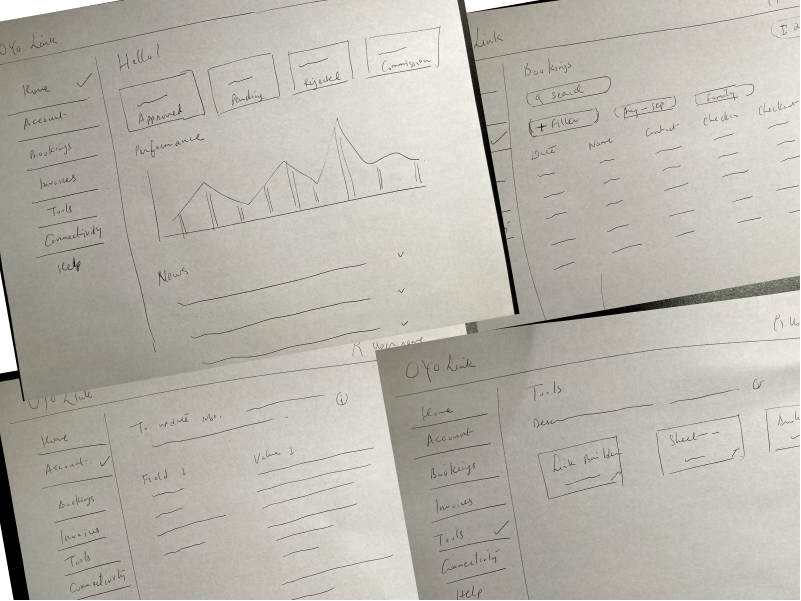 OYO Link
Home
Account
Bookings
Invoices
Tools
Connectivity
Help
Hello!
Approved
Pending
Rejected
Commission
Performance
News
Link
Bookings
Search
+ Filter
Aug - Sep
Family
Date
Name
Contact
Checkin
Checkout
OYO Link
Username
Home
Account
Bookings
Invoices
Tools
Connectivity
To update
Field 1
Value 1
OYO Link
Home
Account
Bookings
Invoices
Tools
Connectivity
Help
Tools
Desc
Link Builder
Sheet